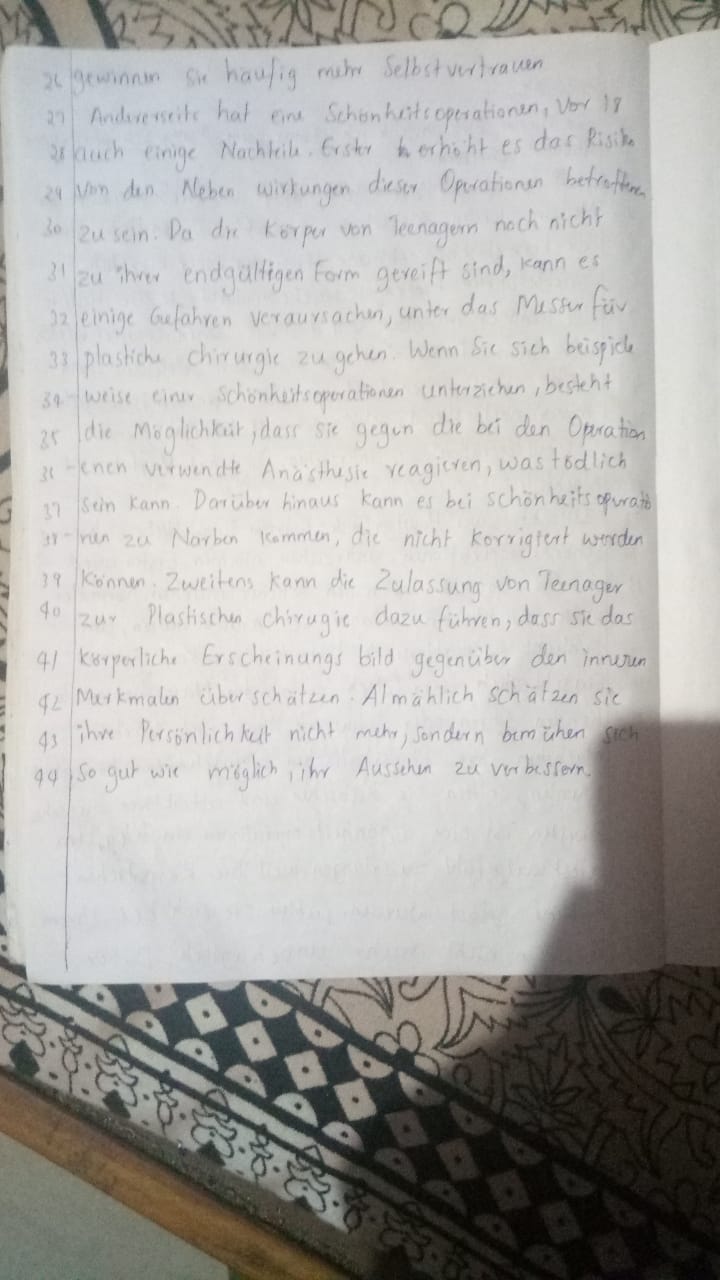 26 gewinnen Sie häufig mehr Selbstvertrauen
27 Andererseits hat eine Schönheitsoperationen, Vor 18
28 auch einige Nachteile. Erster erhöht es das Risiko
29 Von den Neben wirkungen dieser Operationen betroffenen
30 zu sein. Da die Körper von Teenagern noch nicht
31 zu ihrer endgültigen Form gereift sind, kann es
32 einige Gefahren veraursachen, unter das Messer für
33 plastiche chirurgie zu gehen. Wenn Sie sich beispiele
34 - weise einer Schönheitsoperationen unterziehen, besteht
35 die Möglichkeit, dass sie gegen die bei den Operation
36 - enen verwendte Anästhesie reagieren, was tödlich
37 sein kann. Darüber hinaus kann es bei schönheitsoperatio
38 - nen zu Narben kommen, die nicht korrigiert werden
39 können. Zweitens kann die Zulassung von Teenager
40 zur Plastischen chirugie dazu führen, dass sie das
41 körperliche Erscheinungs bild gegenüber den inneren
42 Merkmalen überschätzen. Almählich schätzen sie
43 ihre Persönlichkeit nicht mehr, sondern bemühen sich
44 So gut wie möglich, ihr Aussehen zu verbessern.